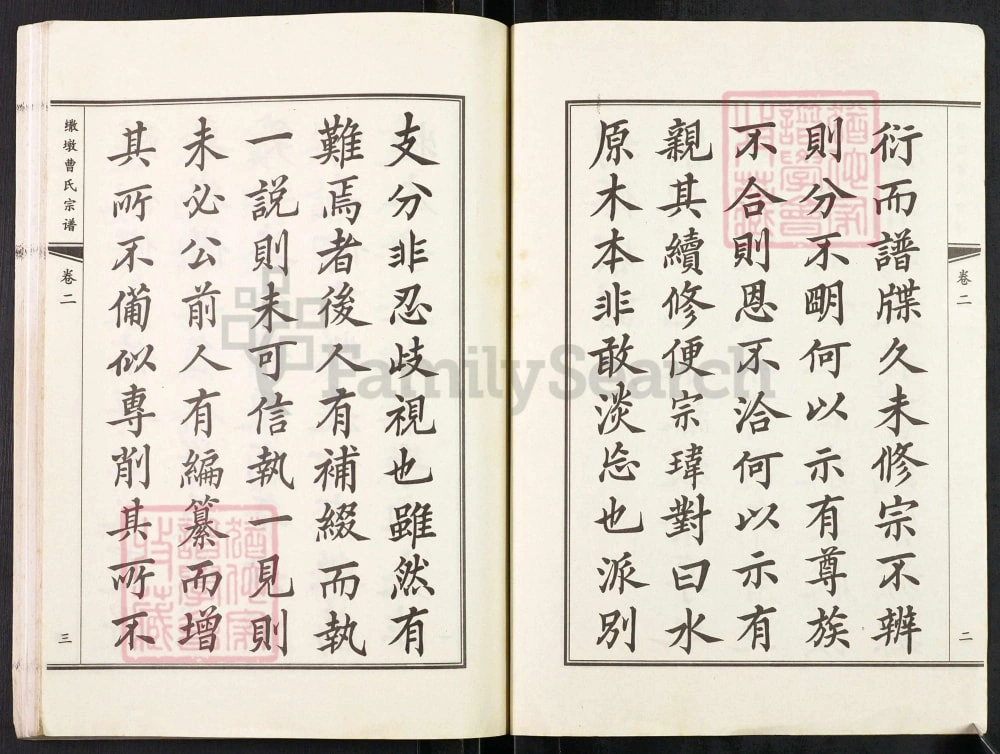 衍而譜牒久未修宗不辨
則分不明何以示有尊族
不合則恩不洽何以示有
親其續修便宗瑋對曰水
原木本非敢淡忘也派別
卷二
二
支分非忍歧視也雖然有
難焉者後人有補綴而執
一説則未可信執一見則
未必公前人有編纂而增
其所不備似專削其所不
墩曹氏宗谱
卷二
三
FamilySearch